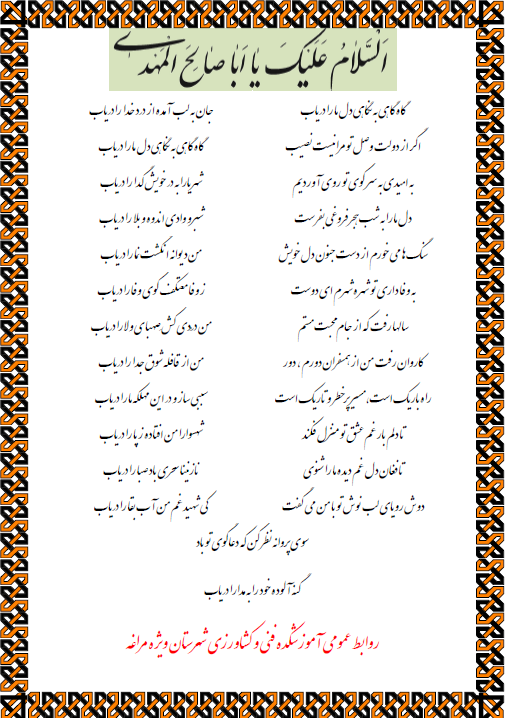 السَّلامُ عَلَیْکَ یٰا اَبٰا صٰالِحَ الْمَهْدی
گاه گاهی به نگاهی دل ما را دریاب جان به لب آمده از درد خدا را دریاب
اگر از دولت وصل تو مرا نیست نصیب گاه گاهی به نگاهی دل ما را دریاب
به امیدی به سر کوی تو روی آوردیم شهریارا به در خویش گدا را دریاب
دل ما را به شب هجر فروغی بفرست شبرو وادی اندوه و بلا را دریاب
سنگ ها می خورم از دست جنون دل خویش من دیوانه انگشت نما را دریاب
به وفاداری تو شهره شهرم ای دوست ز وفا معتکف کوی وفا را دریاب
سالها رفت که از جام محبت مستم من دردی کش صهبای ولا را دریاب
کاروان رفت من از همسفران دورم ، دور من از قافله شوق جدا را دریاب
راه باریک است، مسیر پر خطر و تاریک است سببی ساز و در این مهلکه ما را دریاب
تا دلم بار غم عشق تو منزل فکند شهسوارا من افتاده ز پا را دریاب
تا فغان دل غم دیده ما را شنوی نازنینا سحری باد صبا را دریاب
دوش رویای لب نوش تو با من می گفت کی شهید غم من آب بقا را دریاب
سوی پروانه نظر کن که دعاگوی تو باد
گنه آلوده خود را به مدارا دریاب
روابط عمومی آموزشکده فنی و کشاورزی شهرستان ویژه مراغه